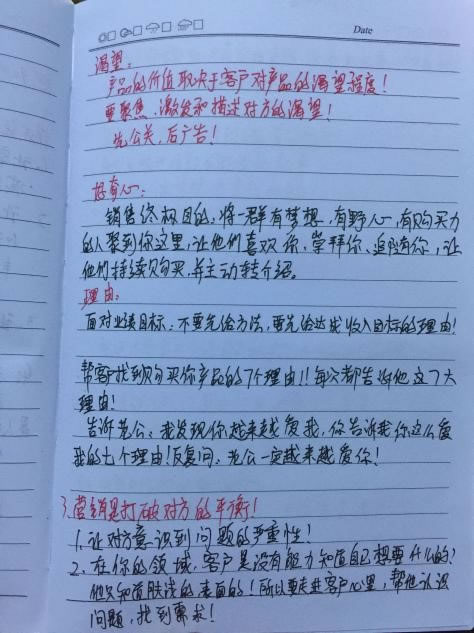 Date
渴望:
产品的价值取决于客户对产品的渴望程度!
要聚焦、激发和描述对方的渴望!
先公关,后广告!
好奇心:
销售终极目的:将一群有梦想、有野心,有购买力
的人聚到你这里,让他们喜欢你,崇拜你,追随你,让
他们持续购买,并主动转介绍。
理由:
面对业绩目标:不要先给方法,要先给达成收入目标的理由!
帮客户找到购买你产品的7个理由!!每次都告诉他这7大
理由!
告诉老公:我发现你越来越爱我,你告诉我你这么爱
我的七个理由!反复问:老公一定越来越爱你!
3.营销是打破对方的平衡!
1.让对方意识到问题的严重性!
2.在你的领域,客户是没有能力知道自己想要什么的?
他只知道肤浅的表面的!所以要走进客户心里,帮他认识
问题,找到需求!